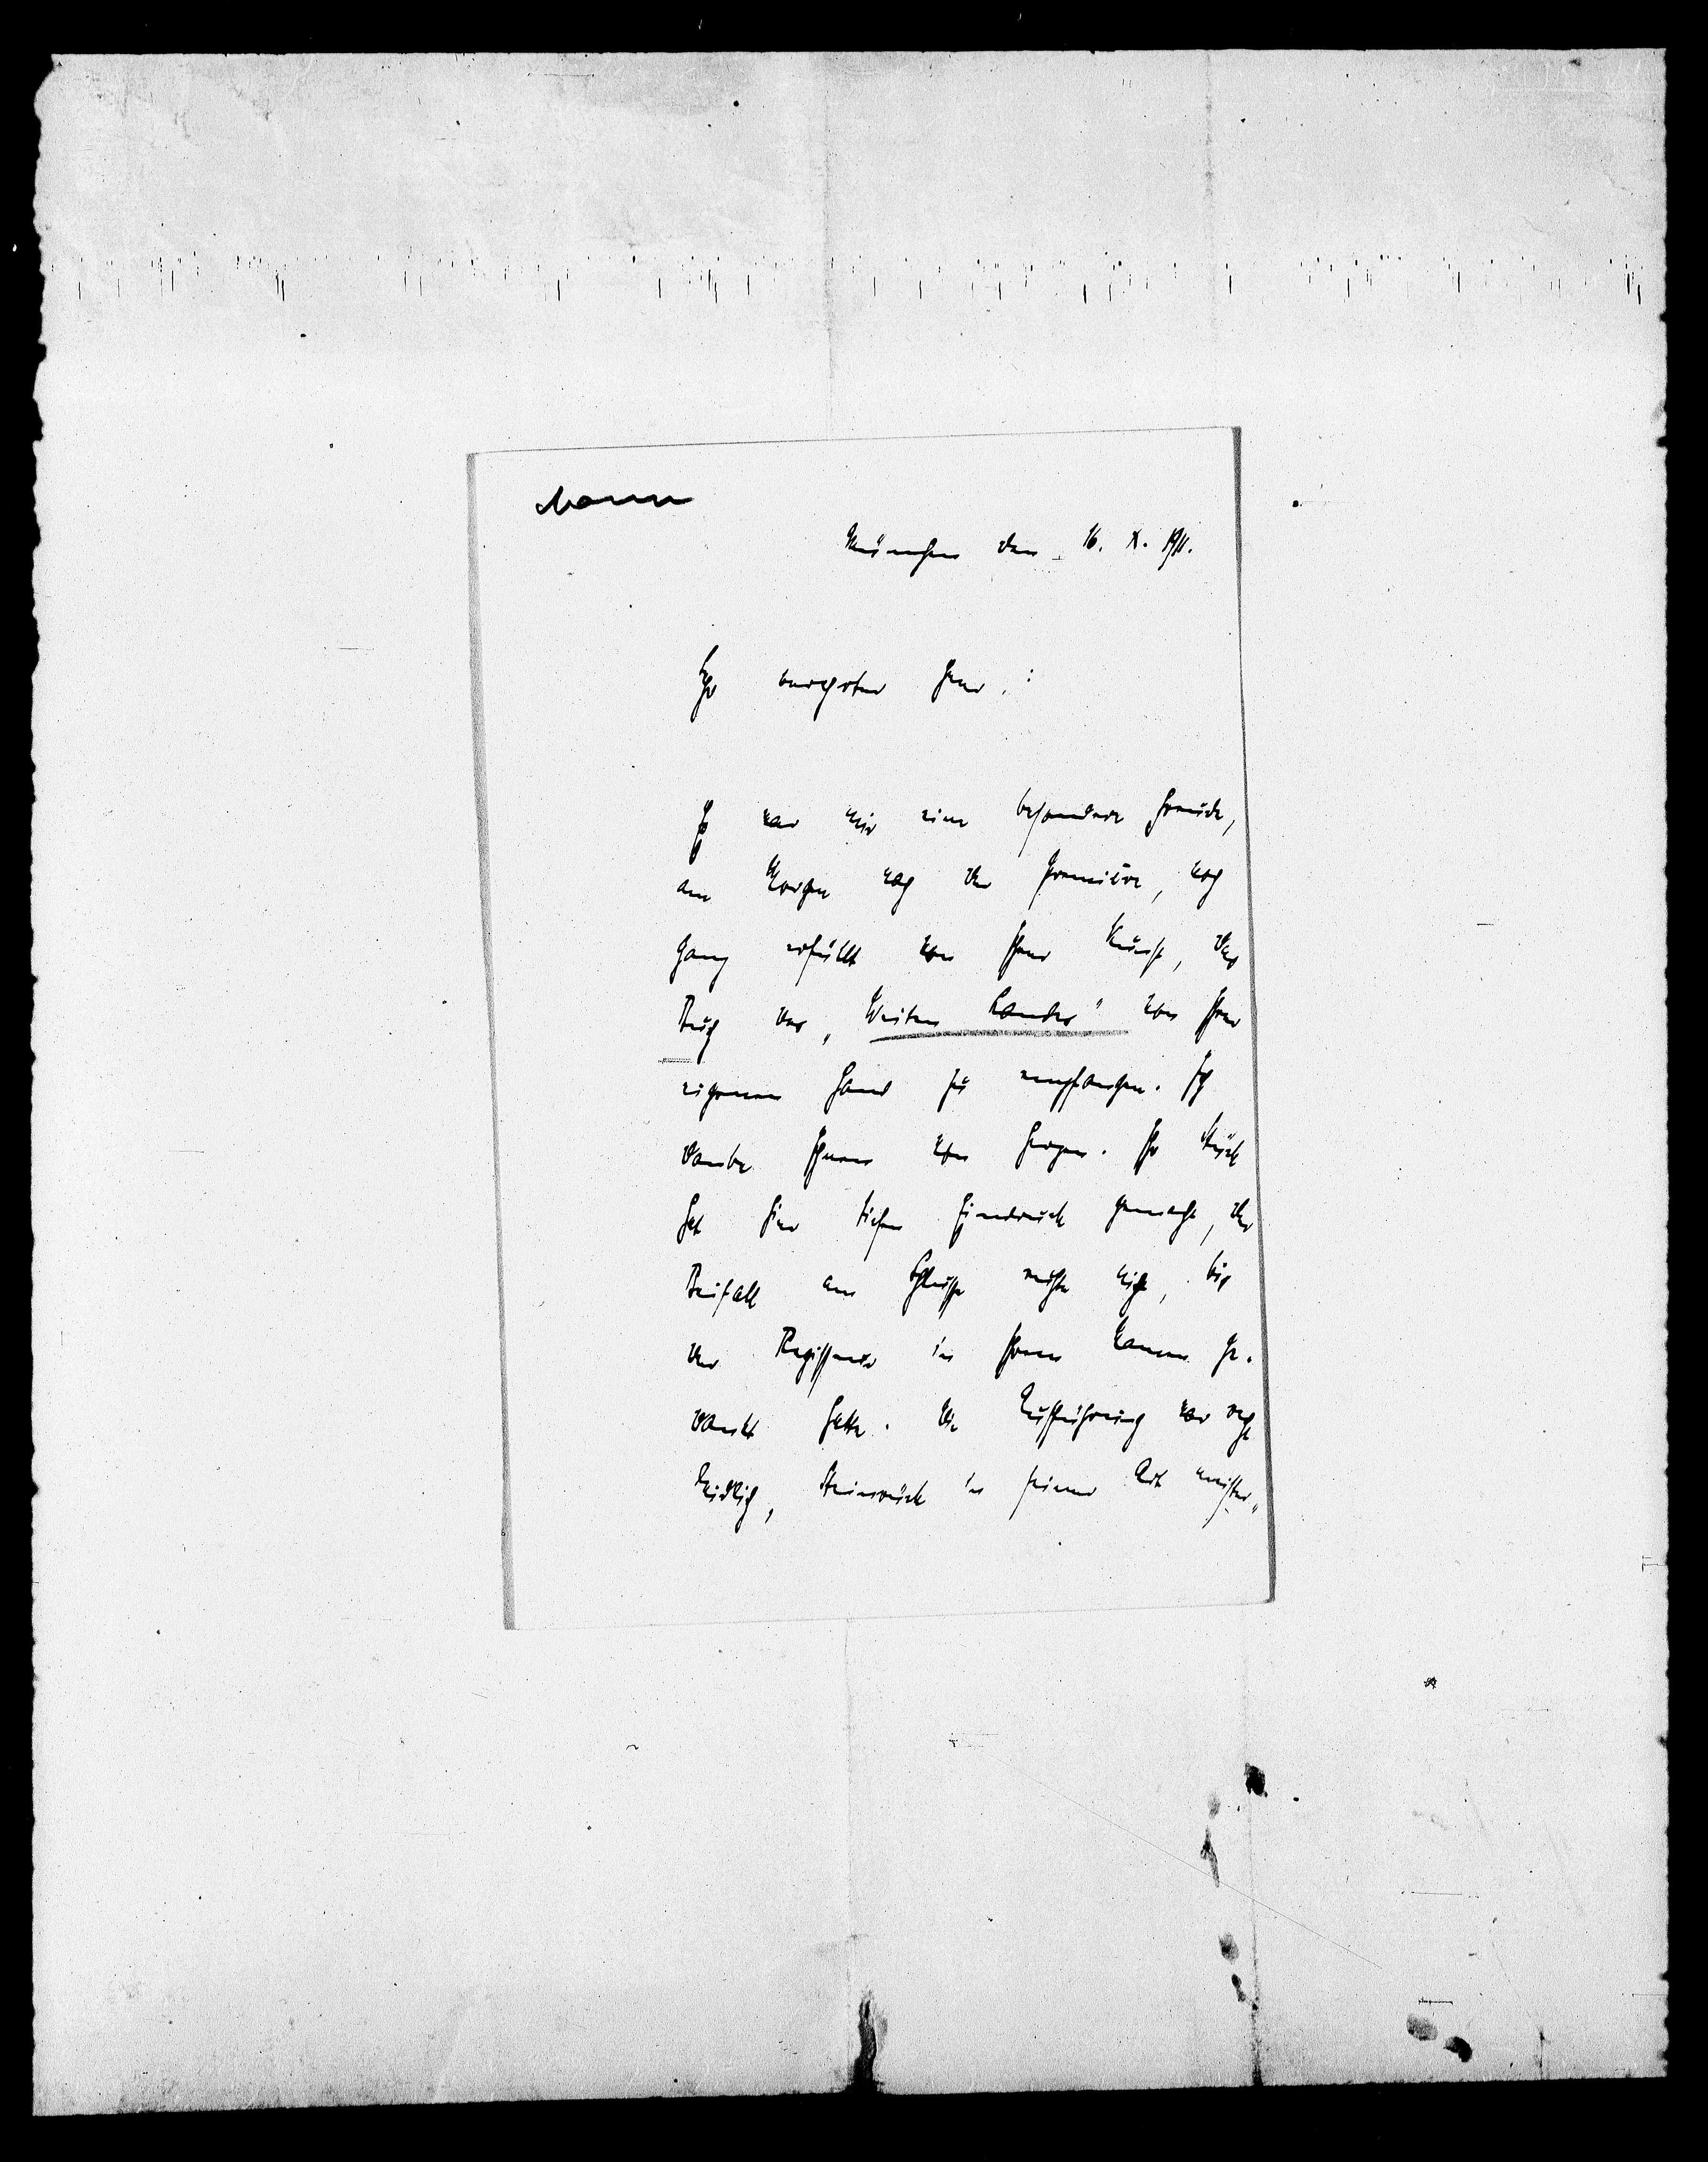 Mann
München den 16. X. 1911.
Sehr verehrter Herr:
Es war mir eine besondere Freude,
am Morgen nach der Première, noch
ganz erfüllt von Ihrer Kunst, das
Buch des „Weiten Landes" von Ihrer
eigenen Hand zu empfangen. Ich
danke Ihnen von Herzen. Ihr Stück
hat hier tiefen Eindruck gemacht, der
Beifall am Schlusse ruhte nicht, bis
der Regisseur in Ihrem Namen ge-
dankt hatte. Die Aufführung war recht
leidlich, Steinrück in seiner Art meister-